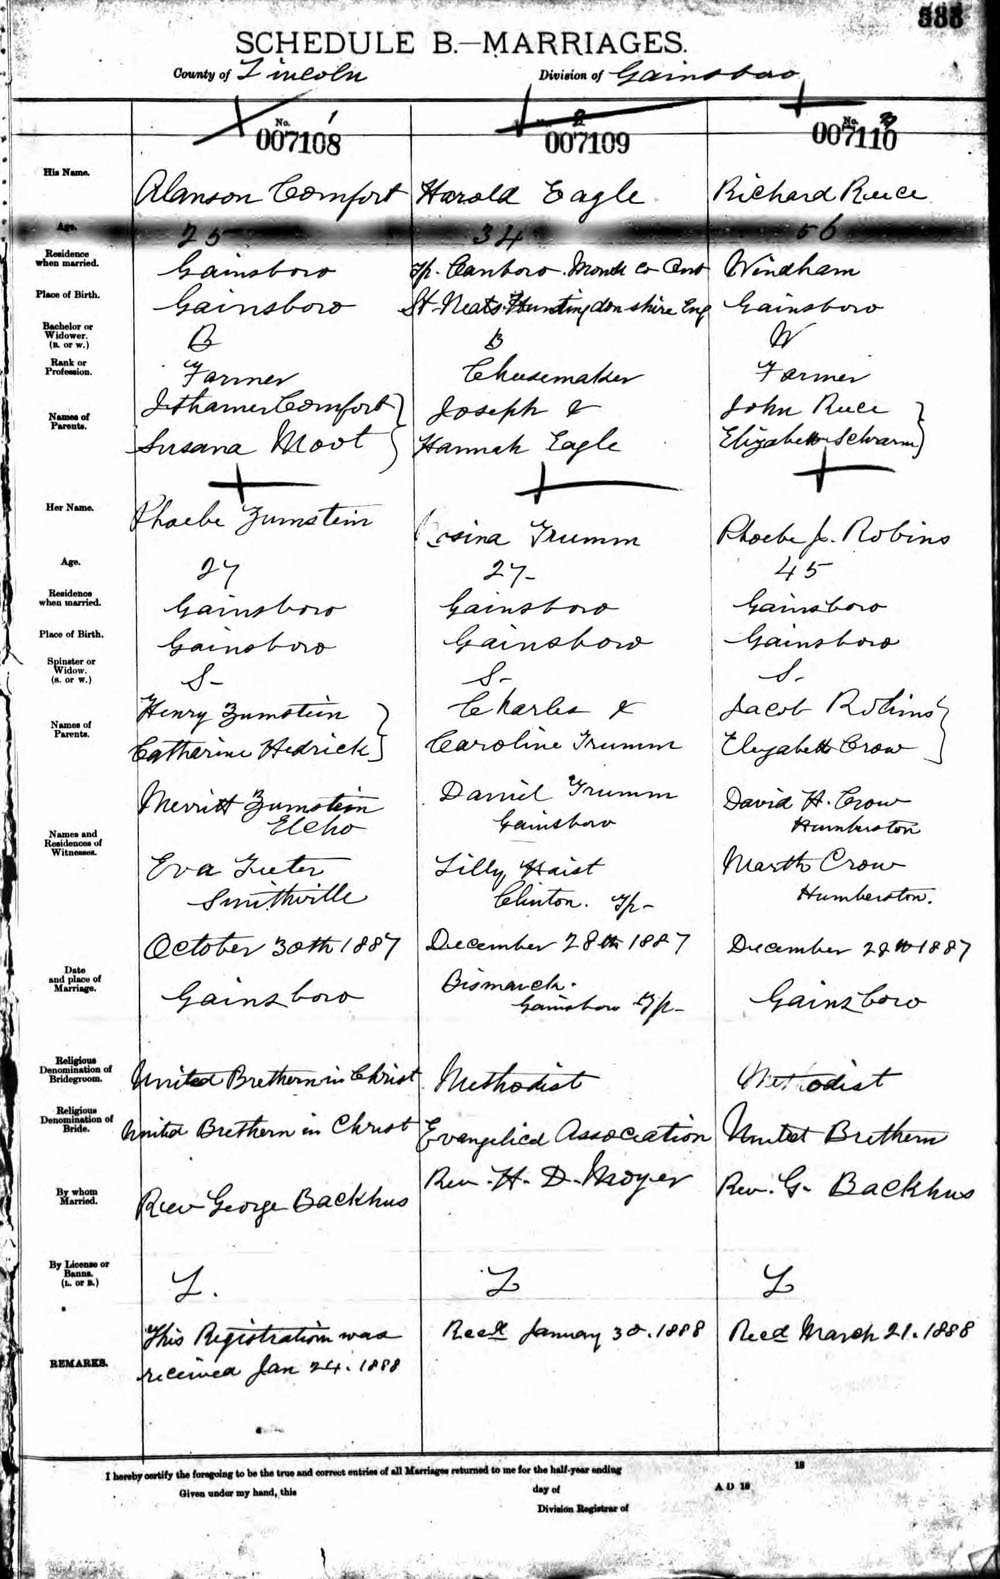 588
SCHEDULE B.—MARRIAGES.
County of Lincoln Division of Gainsboro
No. 1 007108
2 007109
No. 3 007110
His Name. Alanson Comfort Harold Eagle Richard Ruce
Age. 25 34 56
Residence when married. Gainsboro Tp. Canboro. Monck Co Ont Windham
Place of Birth. Gainsboro St Neats Huntingdonshire Eng Gainsboro
Bachelor or Widower. (B. or W.) B B W
Rank or Profession. Farmer Cheesemaker Farmer
Names of Parents. Comfort Joseph & John Ruce
Susana Moot Hannah Eagle Elizabeth
Her Name. Phoebe Zumstein Rosina Trumm Phoebe J. Robins
Age. 27 27- 45
Residence when married. Gainsboro Gainsboro Gainsboro
Place of Birth. Gainsboro Gainsboro Gainsboro
Spinster or Widow. (S. or W.) S- S- S-
Names of Parents. Henry Zumstein Charles & Jacob Robins
Catharine Hedrick Caroline Trumm Elizabeth Crow
Names and Residences of Witnesses. Merritt Zumstein Daniel Trumm David H. Crow
Elcho Gainsboro Humberston
Eva Teeter Lilly Haist Marth Crow
Smithville Clinton. Tp- Humberston.
Date and place of Marriage. October 30th 1887 December 28th 1887 December 28th 1887
Gainsboro Bismarck. Gainsboro Tp- Gainsboro
Religious Denomination of Bridegroom. United Brethern in Christ Methodist Methodist
Religious Denomination of Bride. United Brethern in Christ Evangelical Association United Brethern
By whom Married. Rev George Backhus Rev. H. D. Moyer Rev. G. Backhus
By License or Banns. (L. or B.) L. L L
REMARKS. This Registration was Recd January 30. 1888 Recd March 21. 1888
received Jan 24. 1888
I hereby certify the foregoing to be the true and correct entries of all Marriages returned to me for the half-year ending 18
Given under my hand, this day of A D 18
Division Registrar of